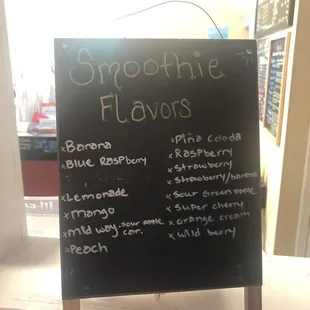 Smoothie
Flavors
xBanana
xBlue Raspberry
xLemonade
xMango
xMid way-sour apple
car.
xPeach
xPiña Colada
xRaspberry
xStrawberry
xStrawberry/banana
xSour Green apple
xSuper cherry
xorange cream
xwild berry